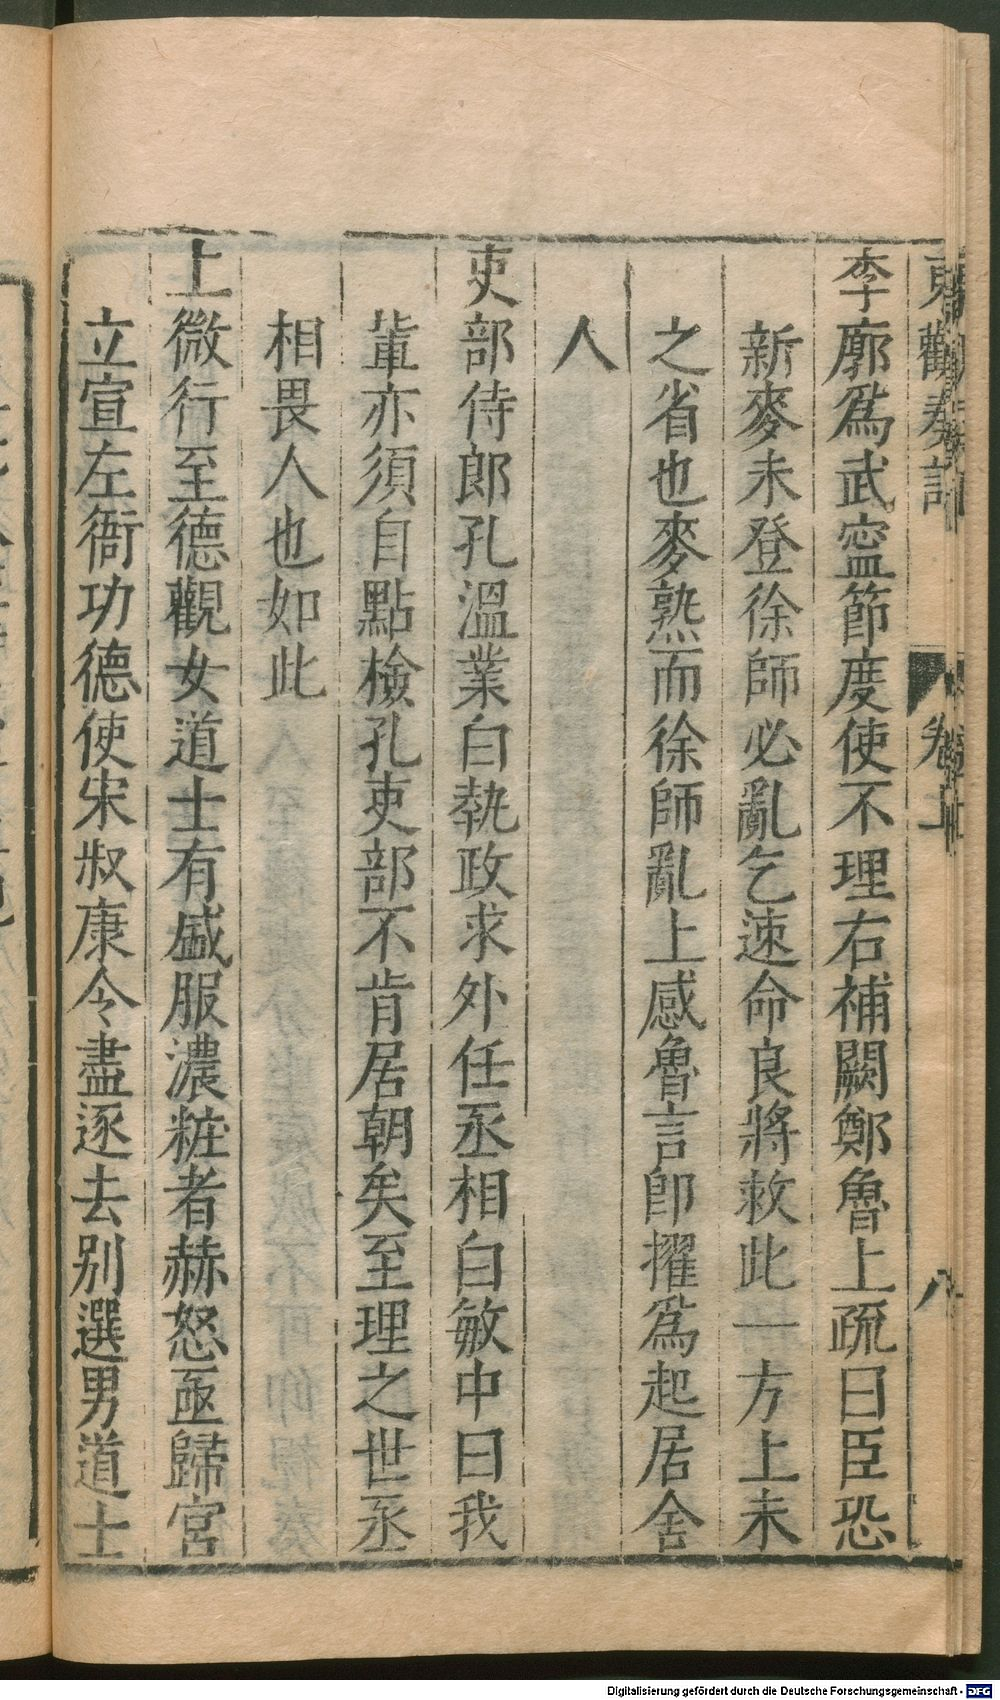 東觀奏記 卷上 八
李廓爲武寍節度使不理右補闕鄭魯上疏曰臣恐
新麥未登徐師必亂乞速命良將救此一方上未
之省也麥熟而徐師亂上感魯言卽擢爲起居舍
人
吏部侍郎孔溫業白執政求外任丞相白敏中曰我
輩亦須自點檢孔吏部不肯居朝矣至理之世丞
相畏人也如此
上微行至德觀女道士有盛服濃粧者赫怒亟歸宮
立宣左衙功德使宋叔康令盡逐去別選男道士
Digitalisierung gefördert durch die Deutsche Forschungsgemeinschaft - DFG